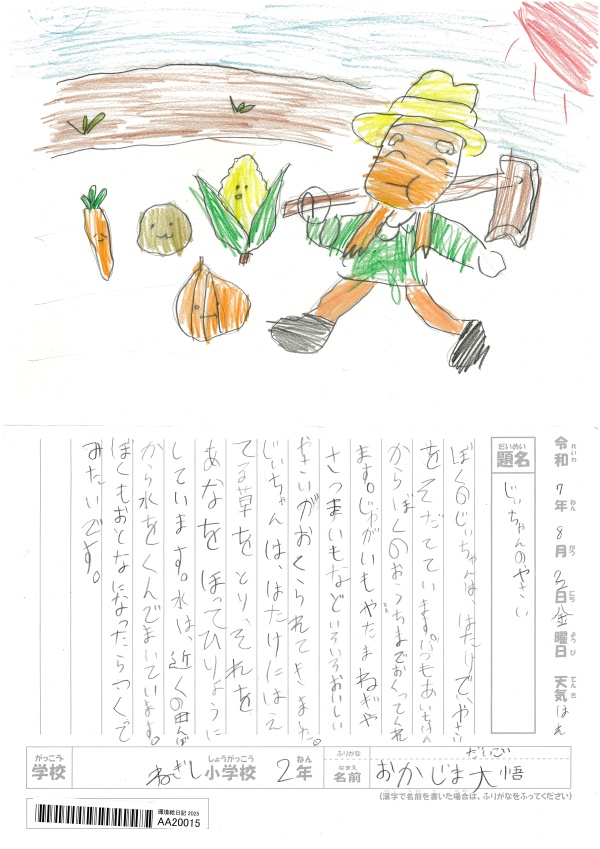 令和 7年 8月 日 金曜日 天気 はれ
れいわ ねん がつ にち ようび てんき
だいめい
題名 じいちゃんのやさい
ぼくのじいちゃんは、はたけで、やさい
をそだてています。いつもあいちけん
からぼくのおうちまでおくってくれ
ます。じゃがいもやたまねぎや
さつまいもなどいろいろおいしい
やさいがおくられてきました。
じいちゃんは、はたけにはえ
てる草をとり、それを
あなをほってひりょうに
しています。水は、近くの田んぼ
から水をくんでまいています。
ぼくもおとなになったらつくて
みたいです。
がっこう しょうがっこう ねん
学校 ねぎし小学校 2年
ふりがな だいご
なまえ
名前 おかじま大悟
(漢字で名前を書いた場合は、ふりがなをふってください)
環境絵日記 2025
AA20015